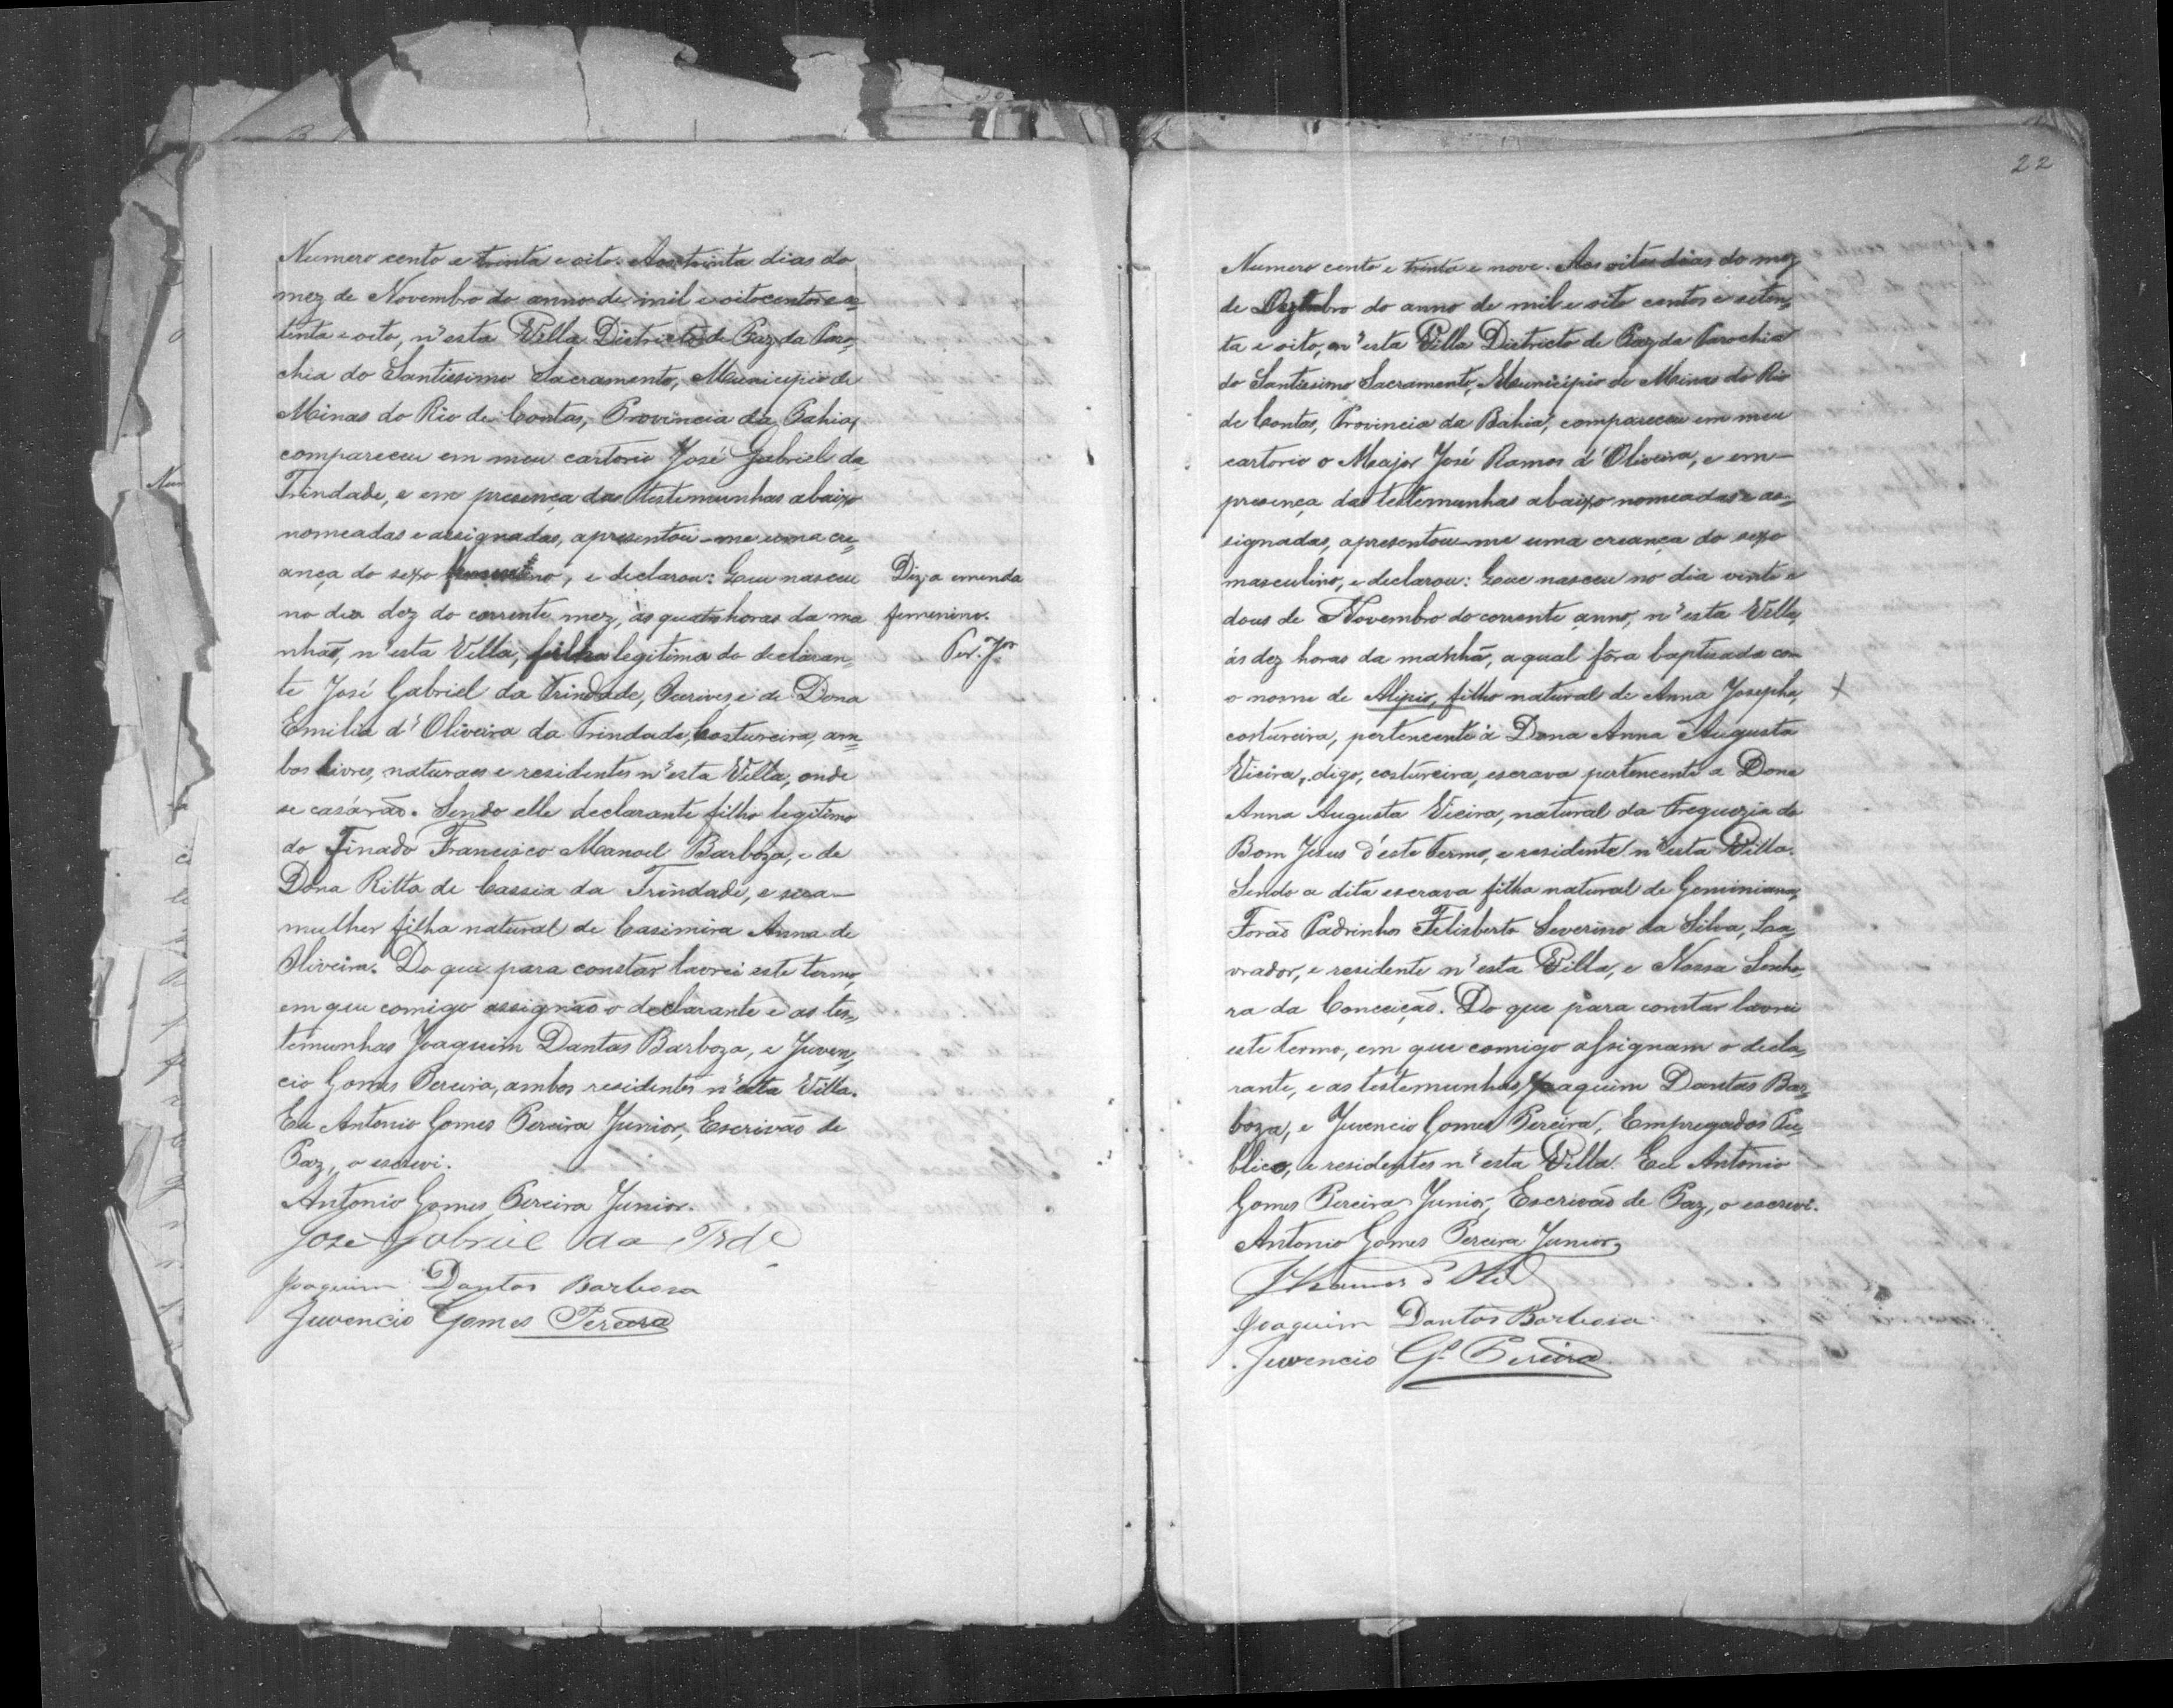 Numero cento e trinta e oito. Aos trinta dias do
mez de Novembro do anno de mil e oitocentos e se=
tenta e oito, n'esta Villa Districto de Paz da Paro=
chia do Santissimo Sacramento, Municipio de
Minas do Rio de Contas, Provincia da Bahia,
compareceu em meu cartorio José Gabriel da
Trindade, e em presença das testemunhas abaixo
nomeadas e assignadas, apresentou-me uma cre=
ança do sexo femenino, e declarou: Que nasceu
no dia dez do corrente mez, ás quatro horas da ma
nhãa, n'esta Villa, filha legitima do declaran=
te José Gabriel da Trindade, Ourives, e de Dona
Emilia d'Oliveira da Trindade, Costureira, am=
bos livres, naturaes e residentes n'esta Villa, onde
se casárão. Sendo elle declarante filho legitimo
do Finado Francisco Manoel Barboza, e de
Dona Ritta de Cassia da Trindade, e sua
mulher filha natural de Casimira Anna de
Oliveira. Do que para constar lavrei este termo,
em que comigo assignão o declarante e as tes=
temunhas Joaquim Dantas Barboza, e Juven=
cio Gomes Pereira, ambos residentes n'esta Villa.
Eu Antonio Gomes Pereira Junior, Escrivão de
Paz, o escrevi.
Antonio Gomes Pereira Junior.
José Gabriel da Trde
Joaquim Dantas Barbosa
Juvencio Gomes Pereira
Diz a emenda
femenino.
Per. Jor
22
Numero cento e trinta e nove. Aos oito dias do mez
de Dezembro do anno de mil e oito centos e seten=
ta e oito, n'esta Villa Districto de Paz da Parochia
do Santissimo Sacramento, Municipio de Minas do Rio
de Contas, Provincia da Bahia, compareceu em meu
cartorio o Major José Ramos d'Oliveira, e em
presença das testemunhas abaixo nomeadas e as=
signadas, apresentou-me uma creança do sexo
masculino, e declarou: Que nasceu no dia vinte e
dous de Novembro do corrente anno, n'esta Villa,
ás dez horas da manhã, a qual fôra baptisada com
o nome de Alipio, filho natural de Anna Josepha, +
costureira, pertencente á Dona Anna Augusta
Vieira, digo, costureira, escrava pertencente a Dona
Anna Augusta Vieira, natural da Freguezia do
Bom Jesus d'este termo, e residente n'esta Villa.
Sendo a dita escrava filha natural de Geminiana,
Forão Padrinhos Felisberto Severino da Silva, Laa=
vrador, e residente n'esta Villa, e Nossa Senho=
ra da Conceição. Do que para constar lavrei
este termo, em que comigo assignam o decla=
rante, e as testemunhas Joaquim Dantas Bar=
boza, e Juvencio Gomes Pereira, Empregados Pu=
blico, e residentes n'esta Villa. Eu Antonio
Gomes Pereira Junior, Escrivão de Paz, o escrevi.
Antonio Gomes Pereira Junior,
JRamos d'Olivra
Joaquim Dantas Barbosa
Juvencio Gs Pereira